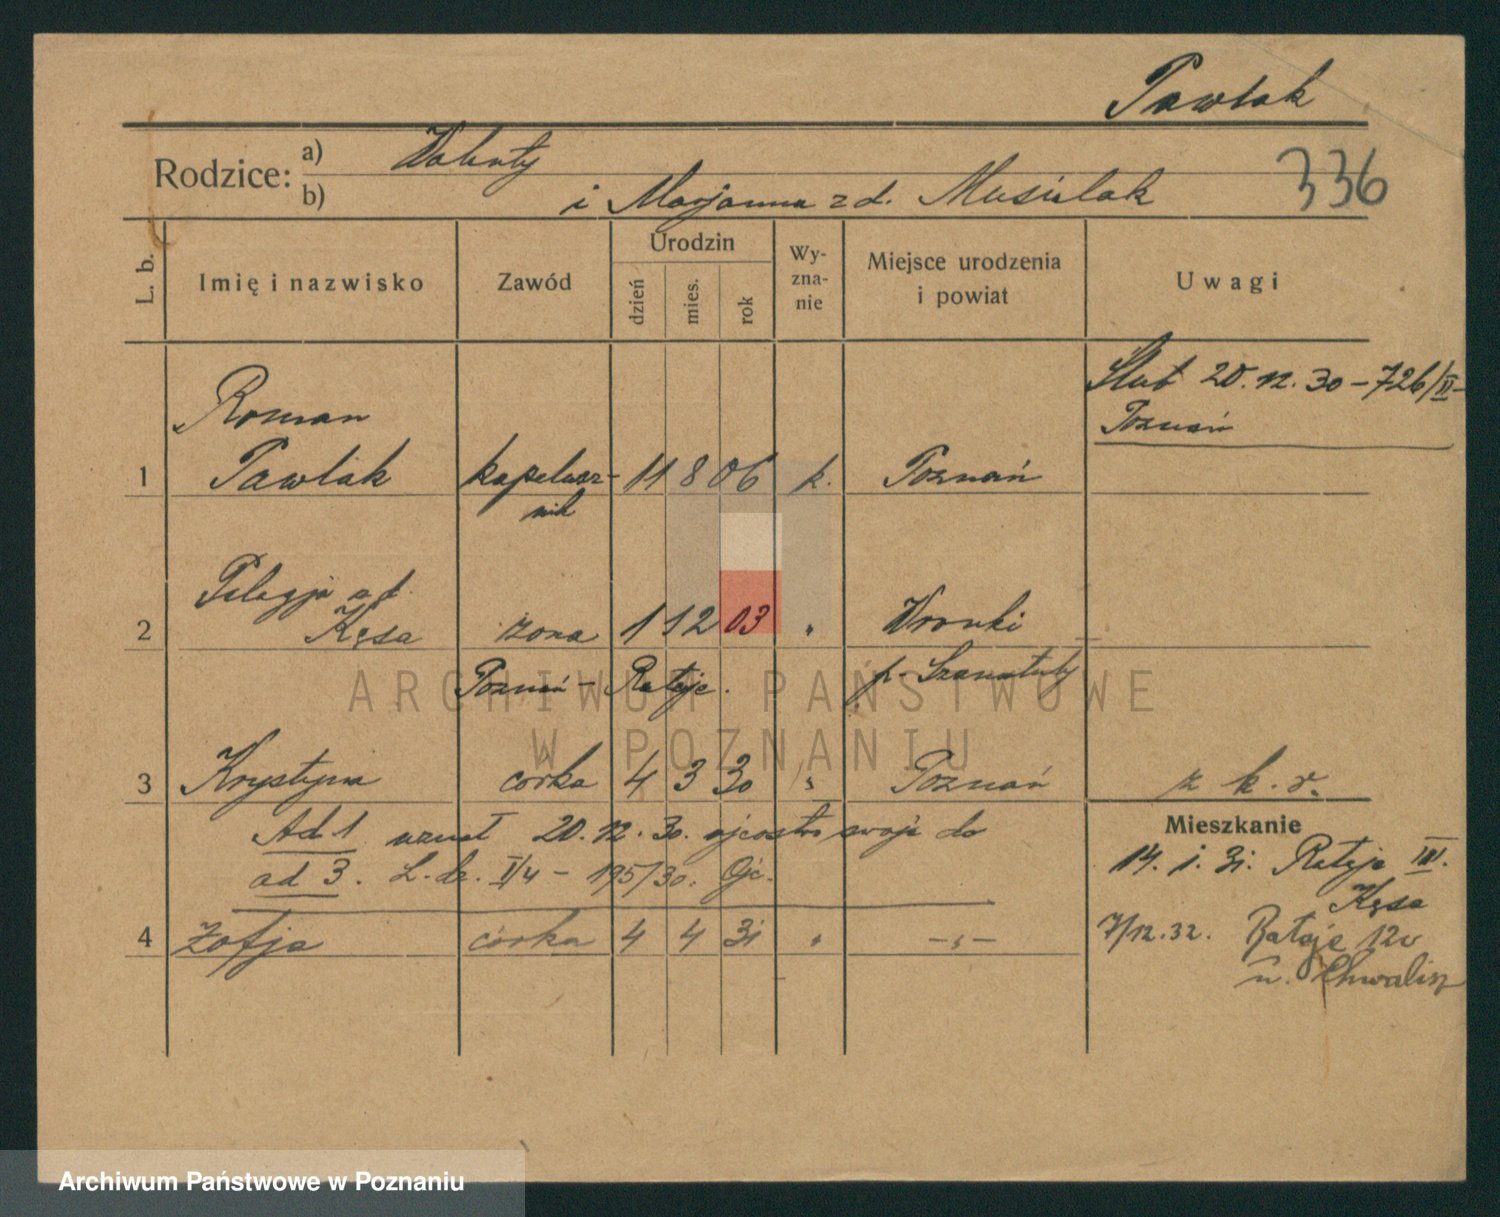 Pawlak
336
Rodzice:
a) Walenty
b) i Marjanna z d. Musielak
L. b.
Imię i nazwisko
Zawód
Urodzin
dzień
mies.
rok
Wy-
zna-
nie
Miejsce urodzenia
i powiat
Uwagi
Ślub 20.12.30 – 726/II –
Poznań
Roman
1 Pawlak kapelusz- 11 8 06 k. Poznań
nik
Pelagja z d.
2 Kęsa żona 1 12 03 " Wronki
Poznań – Rataje. p. Szamotuły
3 Krystyna córka 4 3 30 " Poznań z k. r.
Ad 1 uznał 20.12.30. ojcostwo swoje do
ad 3. L. dz. I/4 – 195/30. Ojc.
4 Zofja córka 4 4 31 " – " –
Mieszkanie
14. 1. 31. Rataje III.
Kęsa
7/12.32. Rataje 12
u. Chwalisz
ARCHIWUM PAŃSTWOWE
W POZNANIU
Archiwum Państwowe w Poznaniu